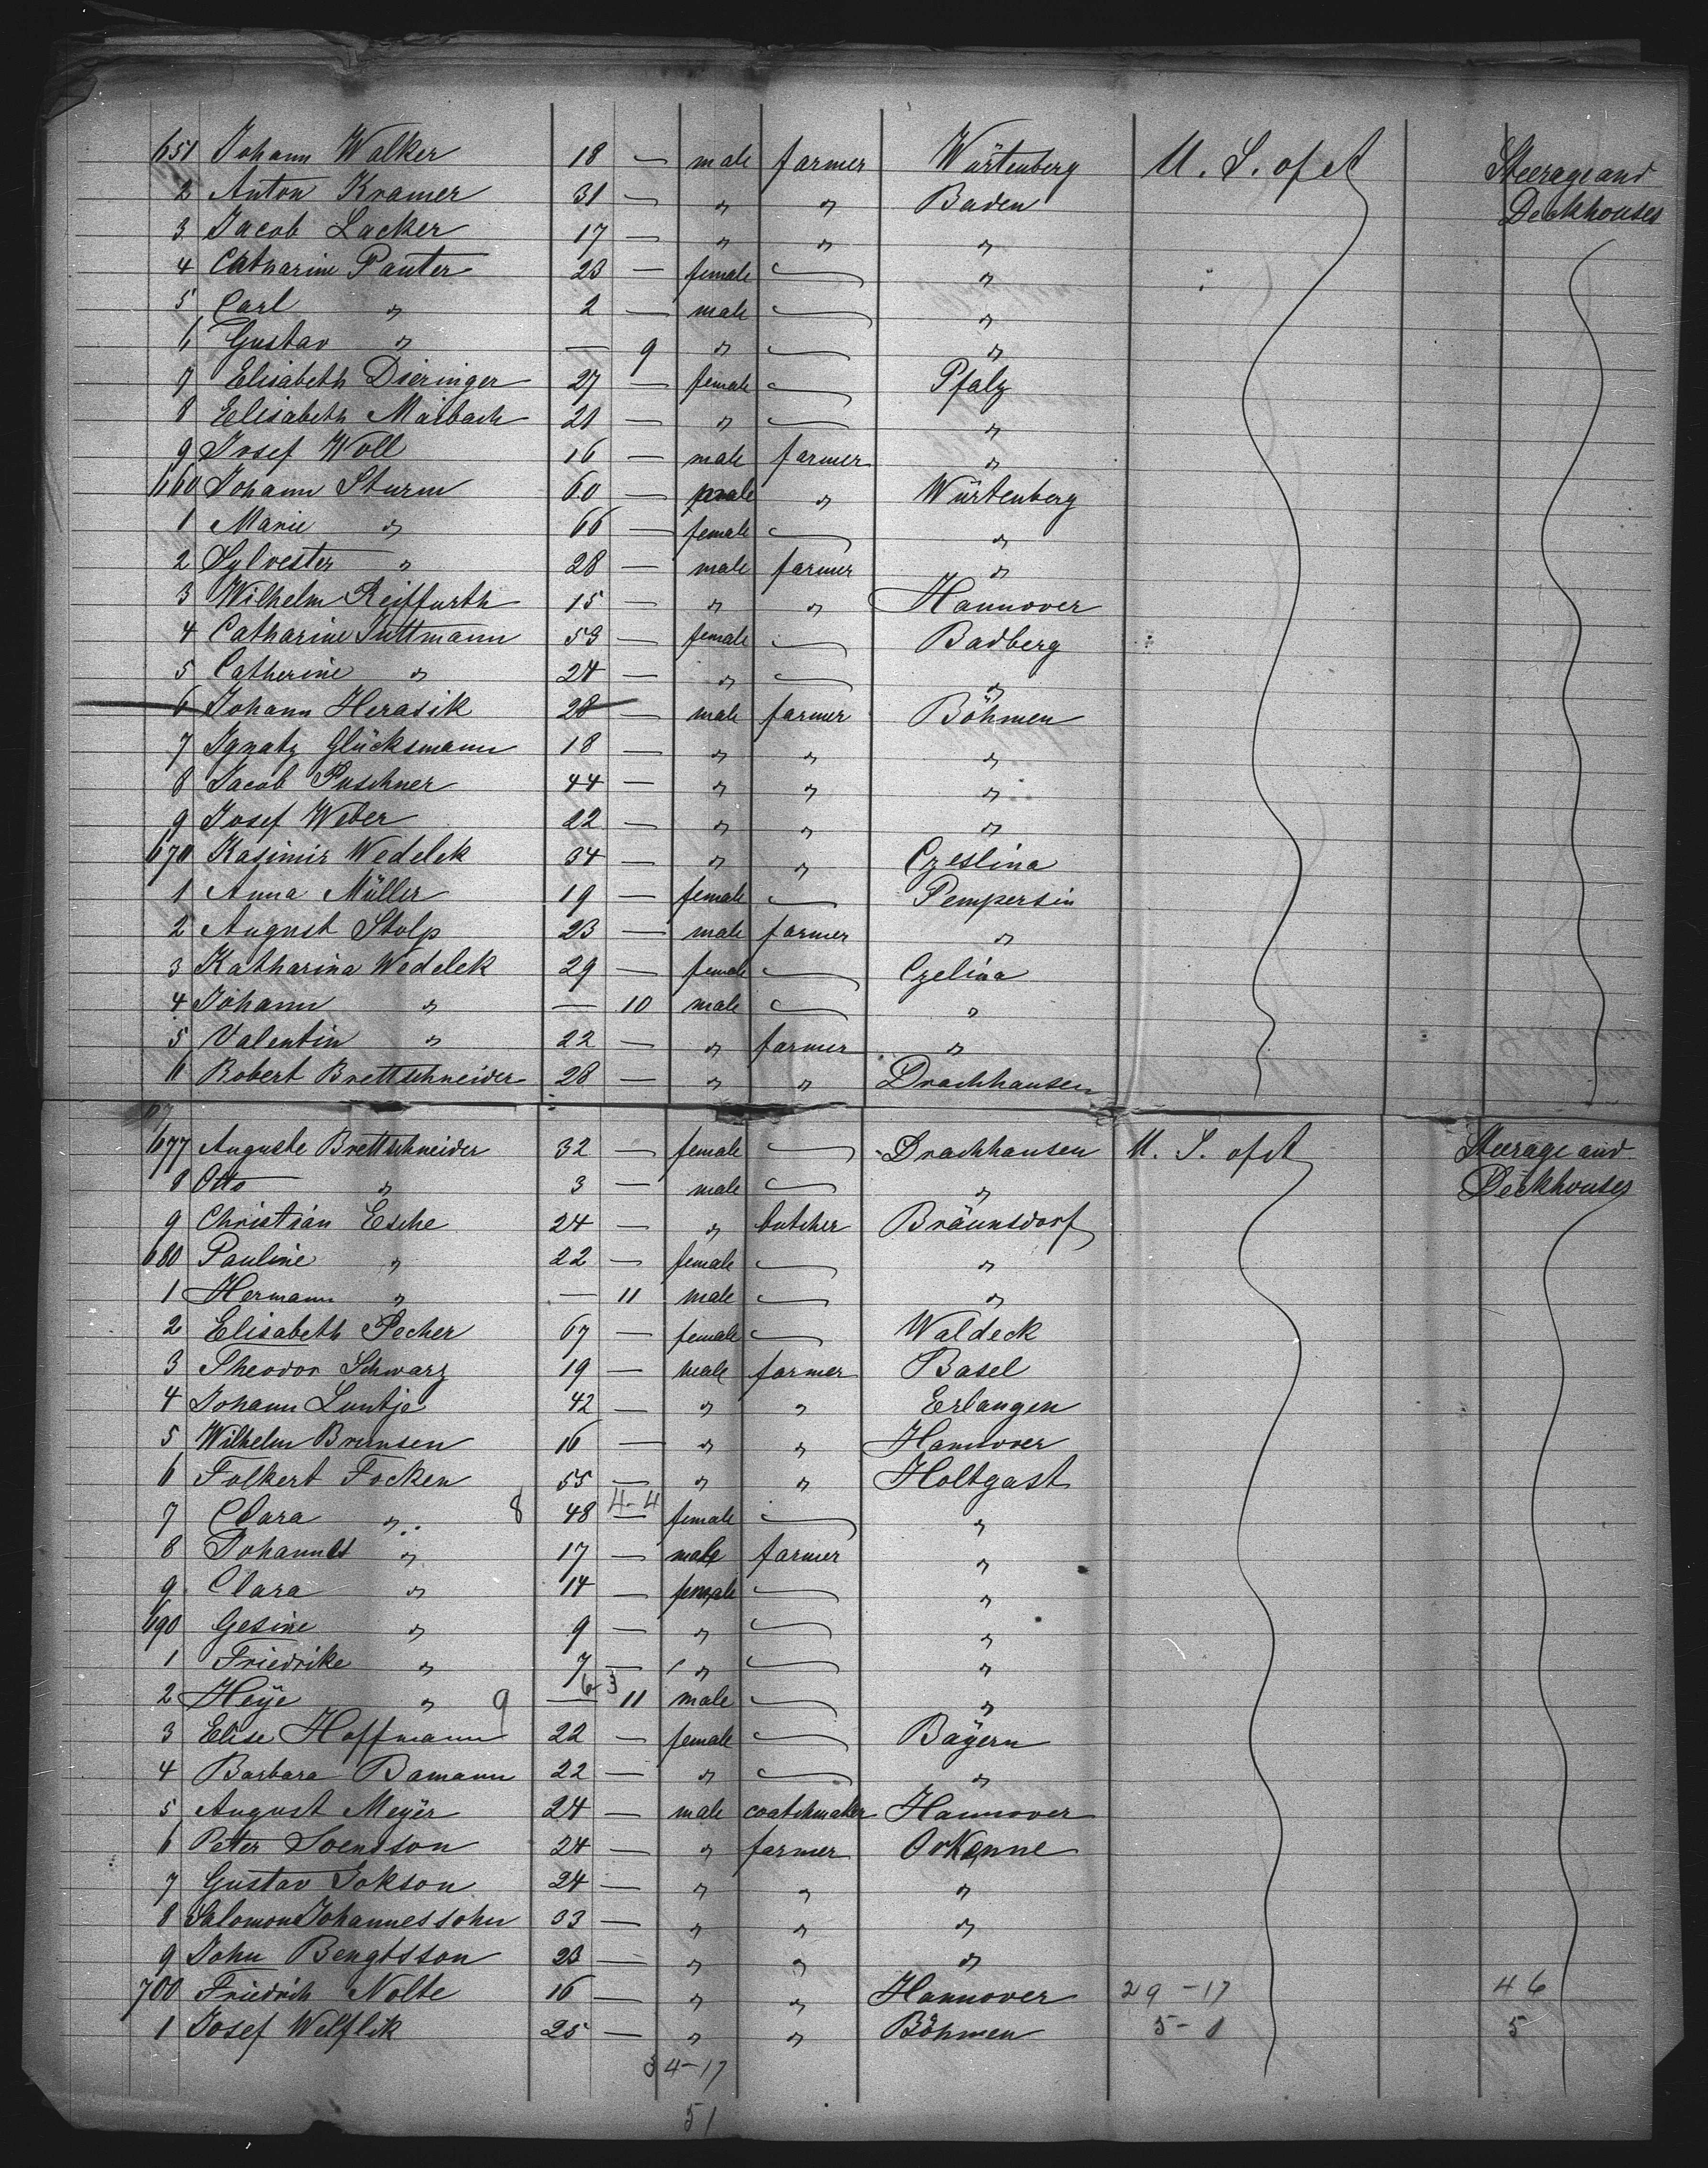 651 Johann Walker 18 — male farmer Würtenberg U. S. of A Steerage and
2 Anton Kramer 31 — " " Baden Deckhouses
3 Jacob Lacker 17 — " " "
4 Catharine Panter 23 — female — "
5 Carl " 2 — male — "
6 Gustav " — 9 " — "
7 Elisabeth Dieringer 27 — female — Pfalz
8 Elisabeth Maibach 21 — " — "
9 Josef Woll 16 — male farmer "
660 Johann Sturm 60 — male " Würtenberg
1 Marie " 66 — female — "
2 Sylvester " 28 — male farmer "
3 Wilhelm Reiffurth 15 — " " Hannover
4 Catharine Suttmann 53 — female — Badberg
5 Catherine " 24 — " — "
6 Johann Herasik 28 — male farmer Böhmen
7 Ignatz Glücksmann 18 — " " "
8 Jacob Puschner 44 — " " "
9 Josef Weber 22 — " " "
670 Kasimir Wedelek 34 — " " Czeslina
1 Anna Müller 19 — female — Pempersin
2 August Stolp 23 — male farmer "
3 Katharina Wedelek 29 — female — Czelina
4 Johann " — 10 male — "
5 Valentin " 22 — " farmer "
6 Robert Brettschneider 28 — " " Drachhausen
677 Auguste Brettschneider 32 — female — Drachhausen U. S. of A Steerage and
8 Otto " 3 — male — " Deckhouses
9 Christian Esche 24 — " butcher Bräunsdorf
680 Pauline " 22 — female — "
1 Hermann " — 11 male — "
2 Elisabeth Pecher 67 — female — Waldeck
3 Theodor Schwarz 19 — male farmer Basel
4 Johann Luntje 42 — " " Erlangen
5 Wilhelm Brunsen 16 — " " Hannover
6 Folkert Focken 55 — " " Holtgast
7 Clara " 8 48 4-4 — female — "
8 Johannes " 17 — male farmer "
9 Clara " 14 — female — "
690 Gesine " 9 — " — "
1 Friedrike " 7 — " — "
2 Heye " 9 — 6-3 11 male — "
3 Elise Hoffmann 22 — female — Bayern
4 Barbara Bamann 22 — " — "
5 August Meyer 24 — male coatchmaker Hannover
6 Peter Svendson 24 — " farmer Orkenne
7 Gustav Jokson 24 — " " "
8 Salomon Johannessohn 33 — " " "
9 John Bengtsson 23 — " " "
700 Friedrich Nolte 16 — " " Hannover 29 - 17 46
1 Josef Welflik 25 — " " Böhmen 5 - 0 5
34-17
51